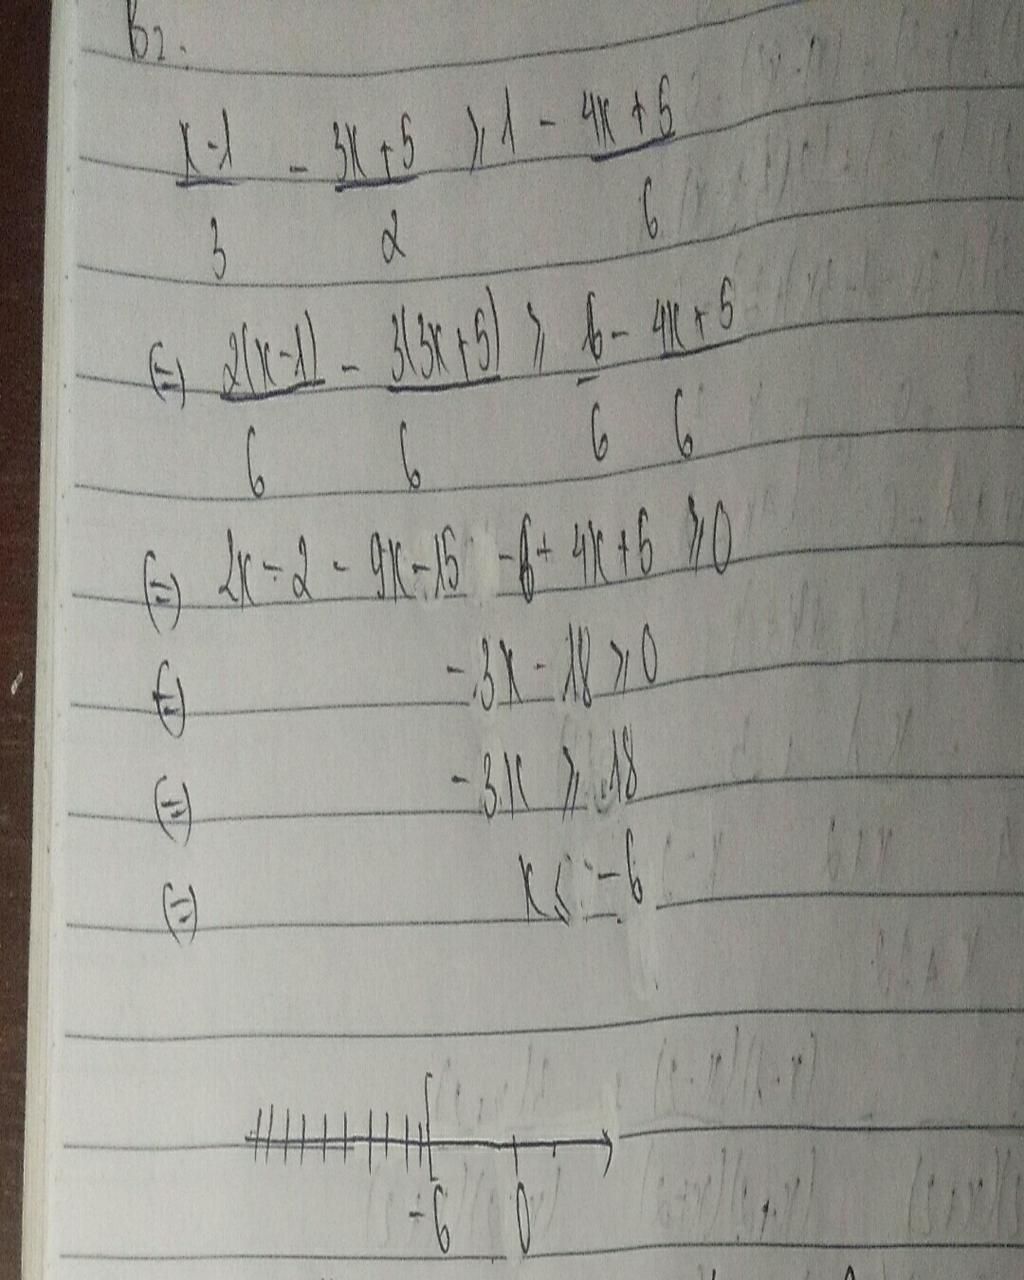 B2.
x-1 / 3 - 3x+5 / 2 ⩾ 1 - 4x+5 / 6
(=) 2(x-1) / 6 - 3(3x+5) / 6 ⩾ 6 / 6 - 4x+5 / 6
(=) 2x - 2 - 9x - 15 - 6 + 4x + 5 ⩾ 0
(=) -3x - 18 ⩾ 0
(=) -3x ⩾ 18
(=) x ⩽ -6
-6 0